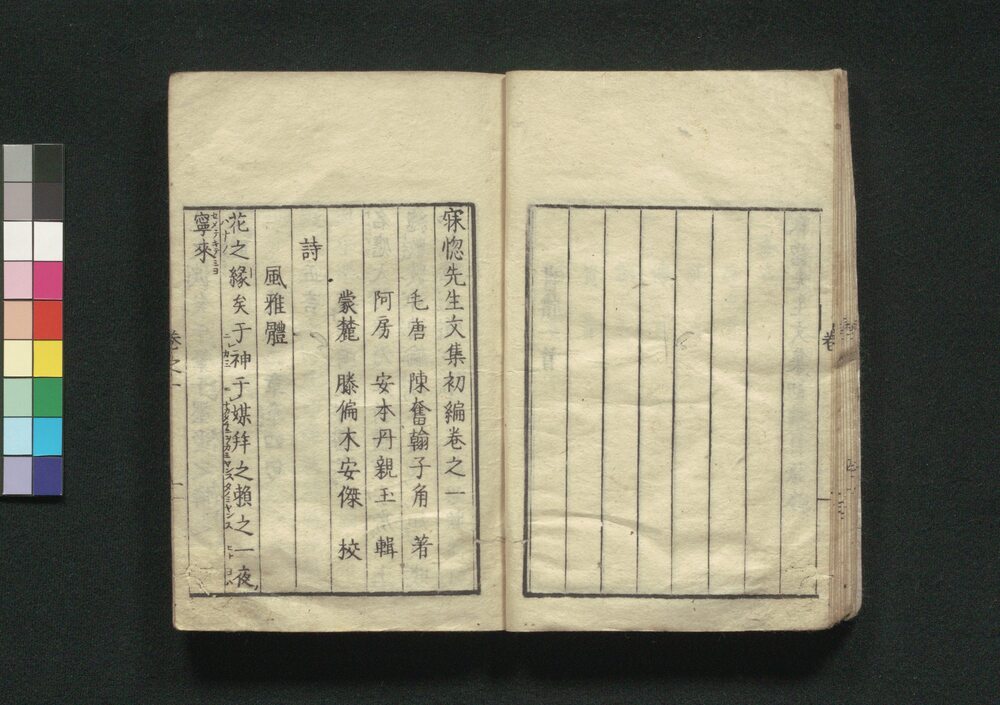 寐惚先生文集初編卷之一
毛唐 陳奮翰子角 著
阿房 安本丹親玉 輯
蒙麓 滕偏木安傑 校
詩
風雅體
花之緣矣于神于媒拜之賴之一夜
寧來
卷之一
卷